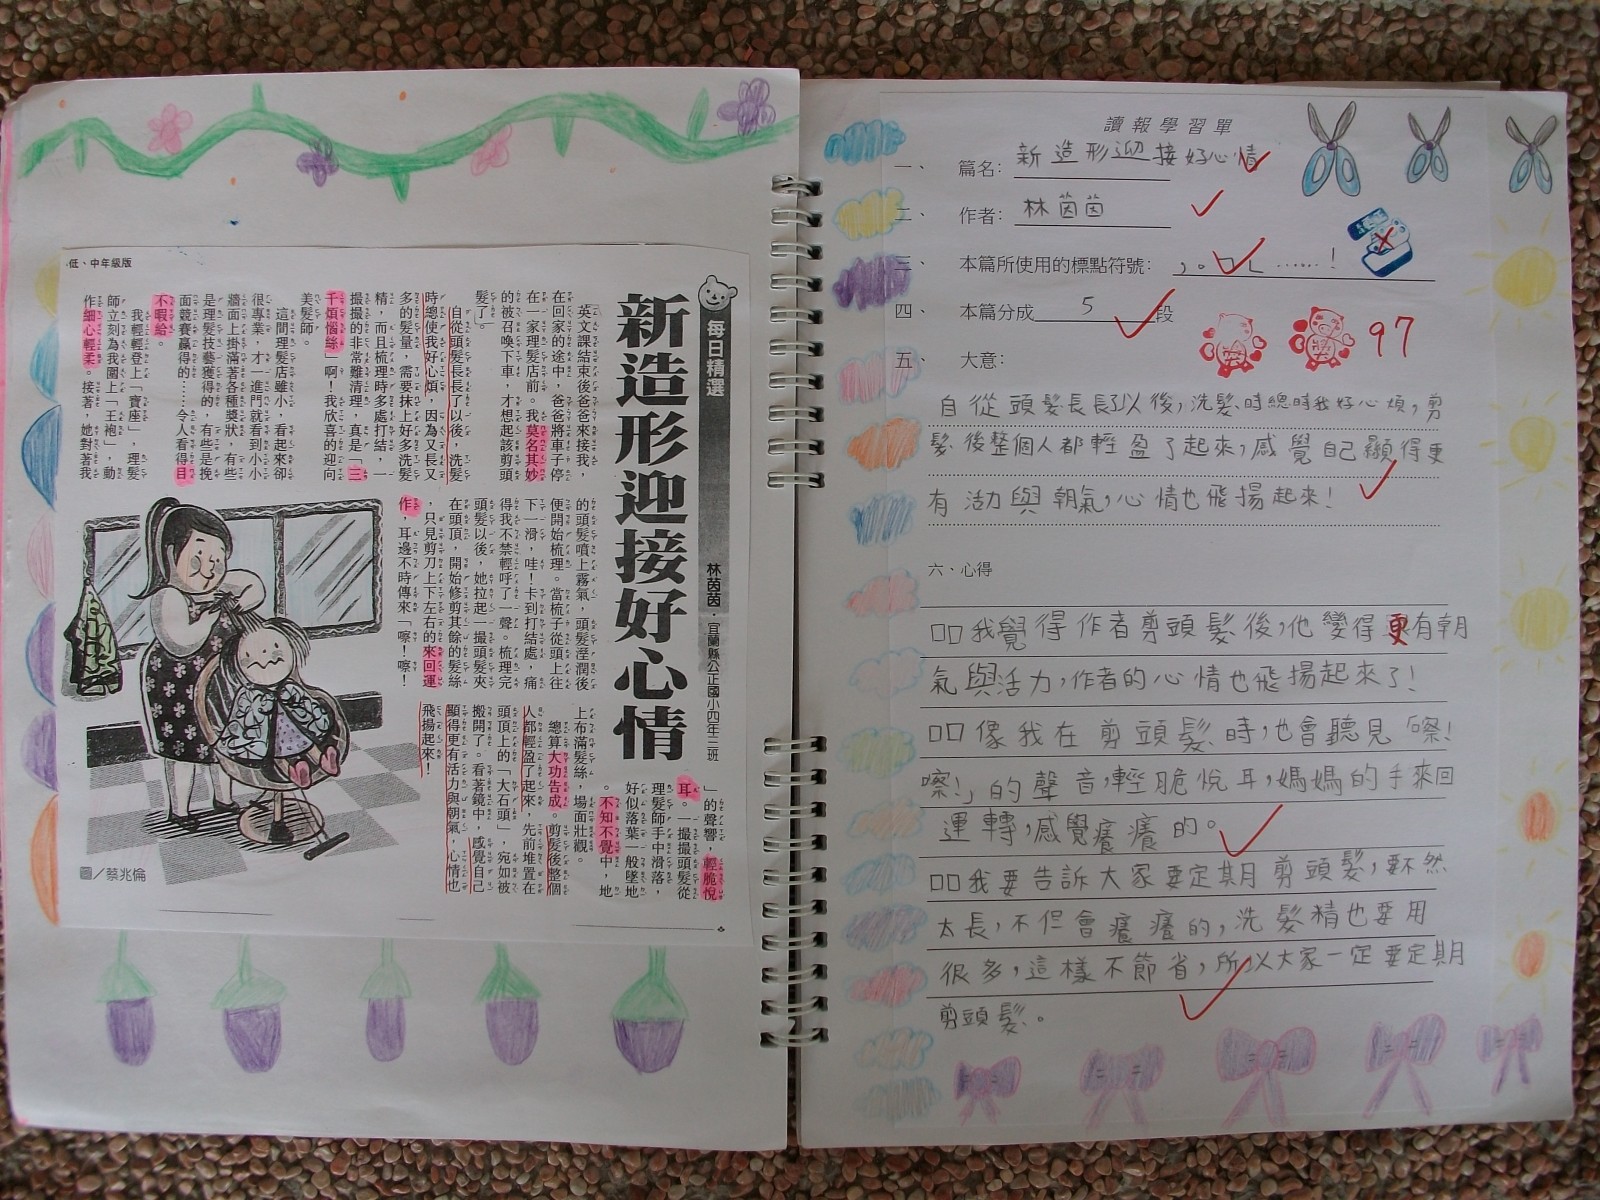 低、中年級版
每日精選
新造形迎接好心情
林茵茵．宜蘭縣公正國小四年二班
英文課結束後爸爸來接我，
在回家的途中，爸爸將車子停
在一家理髮店前。我莫名其妙
的被召喚下車，才想起該剪頭
髮了。
自從頭髮長長了以後，洗髮
時總使我好心煩，因為又長又
多的髮量，需要抹上好多洗髮
精，而且梳理時多處打結，一
撮撮的非常難清理，真是「三
千煩惱絲」啊！我欣喜的迎向
美髮師。
這間理髮店雖小，看起來卻
很專業，才一進門就看到小小
牆面上掛滿著各種獎狀，有些
是理髮技藝獲得的，有些是挽
面競賽贏得的……令人看得目
不暇給。
我輕輕登上「寶座」，理髮
師立刻為我圍上「王袍」，動
作細心輕柔。接著，她對著我
的頭髮噴上霧氣，頭髮溼潤後
便開始梳理。當梳子從頭上往
下一滑，哇！卡到打結處，痛
得我不禁輕呼了一聲。梳理完
頭髮以後，她拉起一撮頭髮夾
在頭頂，開始修剪其餘的髮絲
，只見剪刀上下左右的來回運
作，耳邊不時傳來「嚓！嚓！
」的聲響，輕脆悅
耳。一撮撮頭髮從
理髮師手中滑落，
好似落葉一般墜地
。不知不覺中，地
上布滿髮絲，場面壯觀。
總算大功告成。剪髮後整個
人都輕盈了起來，先前堆置在
頭頂上的「大石頭」，宛如被
搬開了。看著鏡中，感覺自己
顯得更有活力與朝氣，心情也
飛揚起來！
圖／蔡兆倫
讀報學習單
一、 篇名：新造形迎接好心情
二、 作者：林茵茵
三、 本篇所使用的標點符號：，。「」……！
四、 本篇分成 5 段
97
五、 大意：
自從頭髮長長了以後，洗髮時總時我好心煩，剪
髮後整個人都輕盈了起來，感覺自己顯得更
有活力與朝氣，心情也飛揚起來！
六、心得
□□我覺得作者剪頭髮後，他變得更有朝
氣與活力，作者的心情也飛揚起來了！
□□像我在剪頭髮時，也會聽見「嚓！
嚓！」的聲音，輕脆悅耳，媽媽的手來回
運轉，感覺癢癢的。
□□我要告訴大家要定期剪頭髮，要不然
太長，不但會癢癢的，洗髮精也要用
很多，這樣不節省，所以大家一定要定期
剪頭髮。